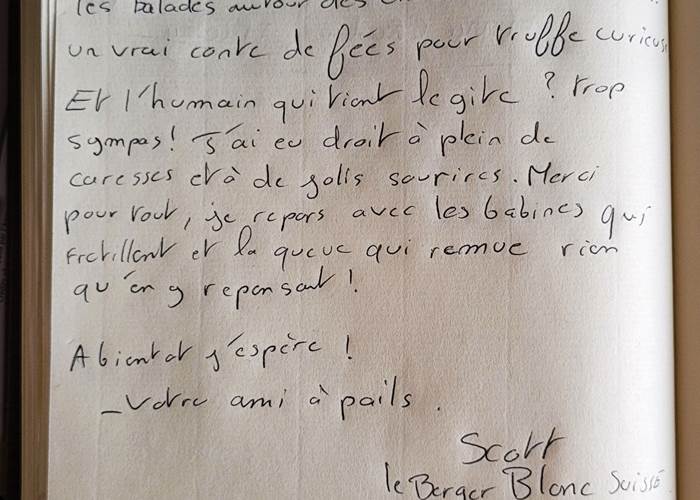 les balades autour des
un vrai conte de fées pour truffe curieus
Et l'humain qui tient le gite ? trop
sympas ! J'ai eu droit à plein de
caresses et à de jolis sourires. Merci
pour tout, je repars avec les babines qui
frétillent et la queue qui remue rien
qu'en y repensant !
A bientot j'espère !
_ Votre ami à pails.
Scott
le Berger Blanc Suisse